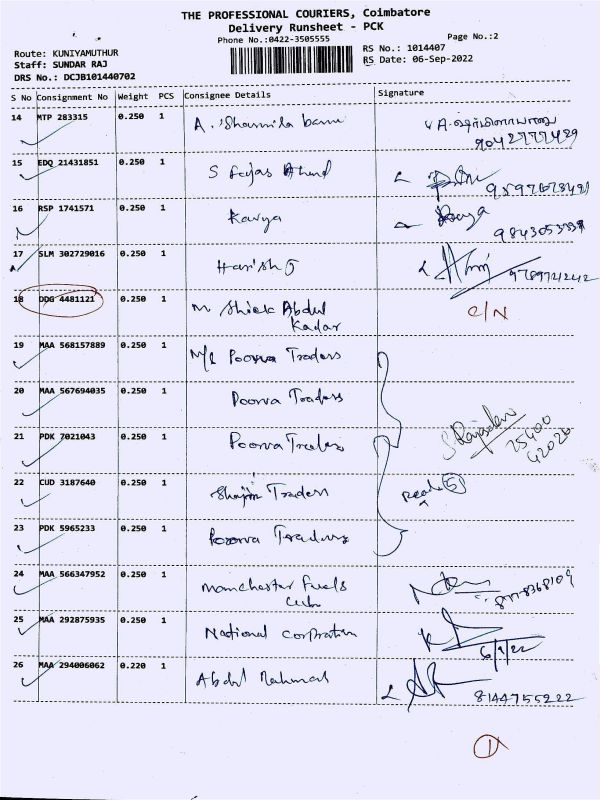 THE PROFESSIONAL COURIERS, Coimbatore
Delivery Runsheet - PCK
Phone No.:0422-3505555
Page No.:2
Route: KUNIYAMUTHUR
RS No.: 1014407
Staff: SUNDAR RAJ
RS Date: 06-Sep-2022
DRS No.: DCJB101440702
S No Consignment No Weight PCS Consignee Details Signature
14 MTP 283315 0.250 1 A. Sharmila banu
9042777429
15 EDQ 21431851 0.250 1 S
16 RSP 1741571 0.250 1 Kavya
17 SLM 302729016 0.250 1 Harish J
9789721242
18 DDG 4481121 0.250 1 M Shiek Abdul C/N
Kadar
19 MAA 568157889 0.250 1 M/s Poorva Traders
20 MAA 567694035 0.250 1 Poorva Traders
21 PDK 7021043 0.250 1 Poorva Traders
25400
42026
22 CUD 3187640 0.250 1 Traders (5)
23 PDK 5965233 0.250 1 Poorva Traders
24 MAA 566347952 0.250 1 Manchester Fuels
25 MAA 292875935 0.250 1 National Corpration
6/9/22
26 MAA 294006062 0.220 1 Abdul Rahman
8144755222
1